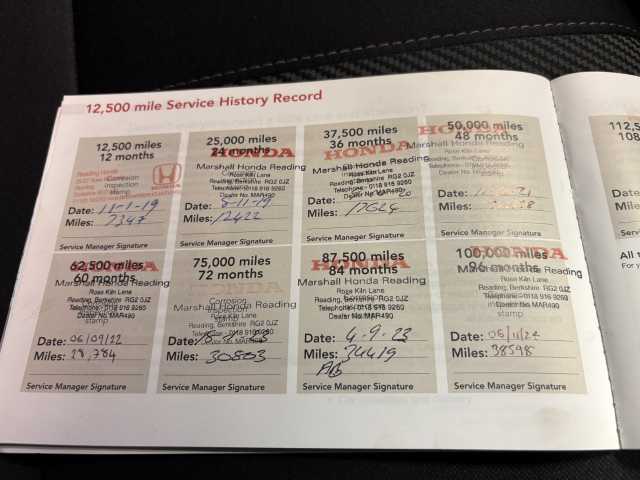 12,500 mile Service History Record
12,500 miles
12 months
Reading Honda
HONDA
Corrosion
inspection
stamp
Date: 11-1-19
Miles: 7347
Service Manager Signature
25,000 miles
24 months
HONDA
Marshall Honda Reading
Rose Kiln Lane
Reading, Berkshire RG2 0JZ
Telephone - 0118 916 9260
Dealer No. MAR490
Date: 8-11-19
Miles: 12422
Service Manager Signature
37,500 miles
36 months
HONDA
Marshall Honda Reading
Rose Kiln Lane
Reading, Berkshire RG2 0JZ
Telephone - 0118 916 9260
Dealer No. MAR490
Date: 20
Miles: 17624
Service Manager Signature
50,000 miles
48 months
HONDA
Marshall Honda Reading
Rose Kiln Lane
Reading, Berkshire RG2 0JZ
Telephone - 0118 916 9260
Dealer No. MAR490
Date:
Miles:
Service Manager Signature
62,500 miles
60 months
HONDA
Marshall Honda Reading
Rose Kiln Lane
Reading, Berkshire RG2 0JZ
Telephone - 0118 916 9260
Dealer No. MAR490
stamp
Date: 06/09/22
Miles: 28,784
Service Manager Signature
75,000 miles
72 months
HONDA
Marshall Honda Reading
Corrosion
Rose Kiln Lane
inspection
Reading, Berkshire RG2 0JZ
stamp
Date:
Miles: 30803
Service Manager Signature
87,500 miles
84 months
HONDA
Marshall Honda Reading
Rose Kiln Lane
Reading, Berkshire RG2 0JZ
Telephone - 0118 916 9260
Dealer No. MAR490
Date: 4-9-23
Miles: 34419
Service Manager Signature
100,000 miles
96 months
HONDA
Marshall Honda Reading
Rose Kiln Lane
Reading, Berkshire RG2 0JZ
Telephone - 0118 916 9260
Dealer No. MAR490
stamp
Date: 06/11/24
Miles: 38598
Service Manager Signature
112,5
108
All t
For y